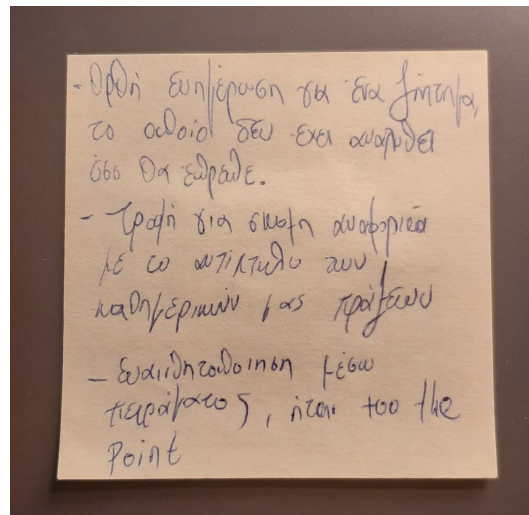 - Ορθή ενημέρωση για ένα ζήτημα,
το οποίο δεν έχει αναλυθεί
όσο θα έπρεπε.
- Τροφή για σκέψη αναφορικά
με το αντίκτυπο των
καθημερινών μας πράξεων
- Ευαισθητοποίηση μέσω
πειράματος, ήταν too the
Point